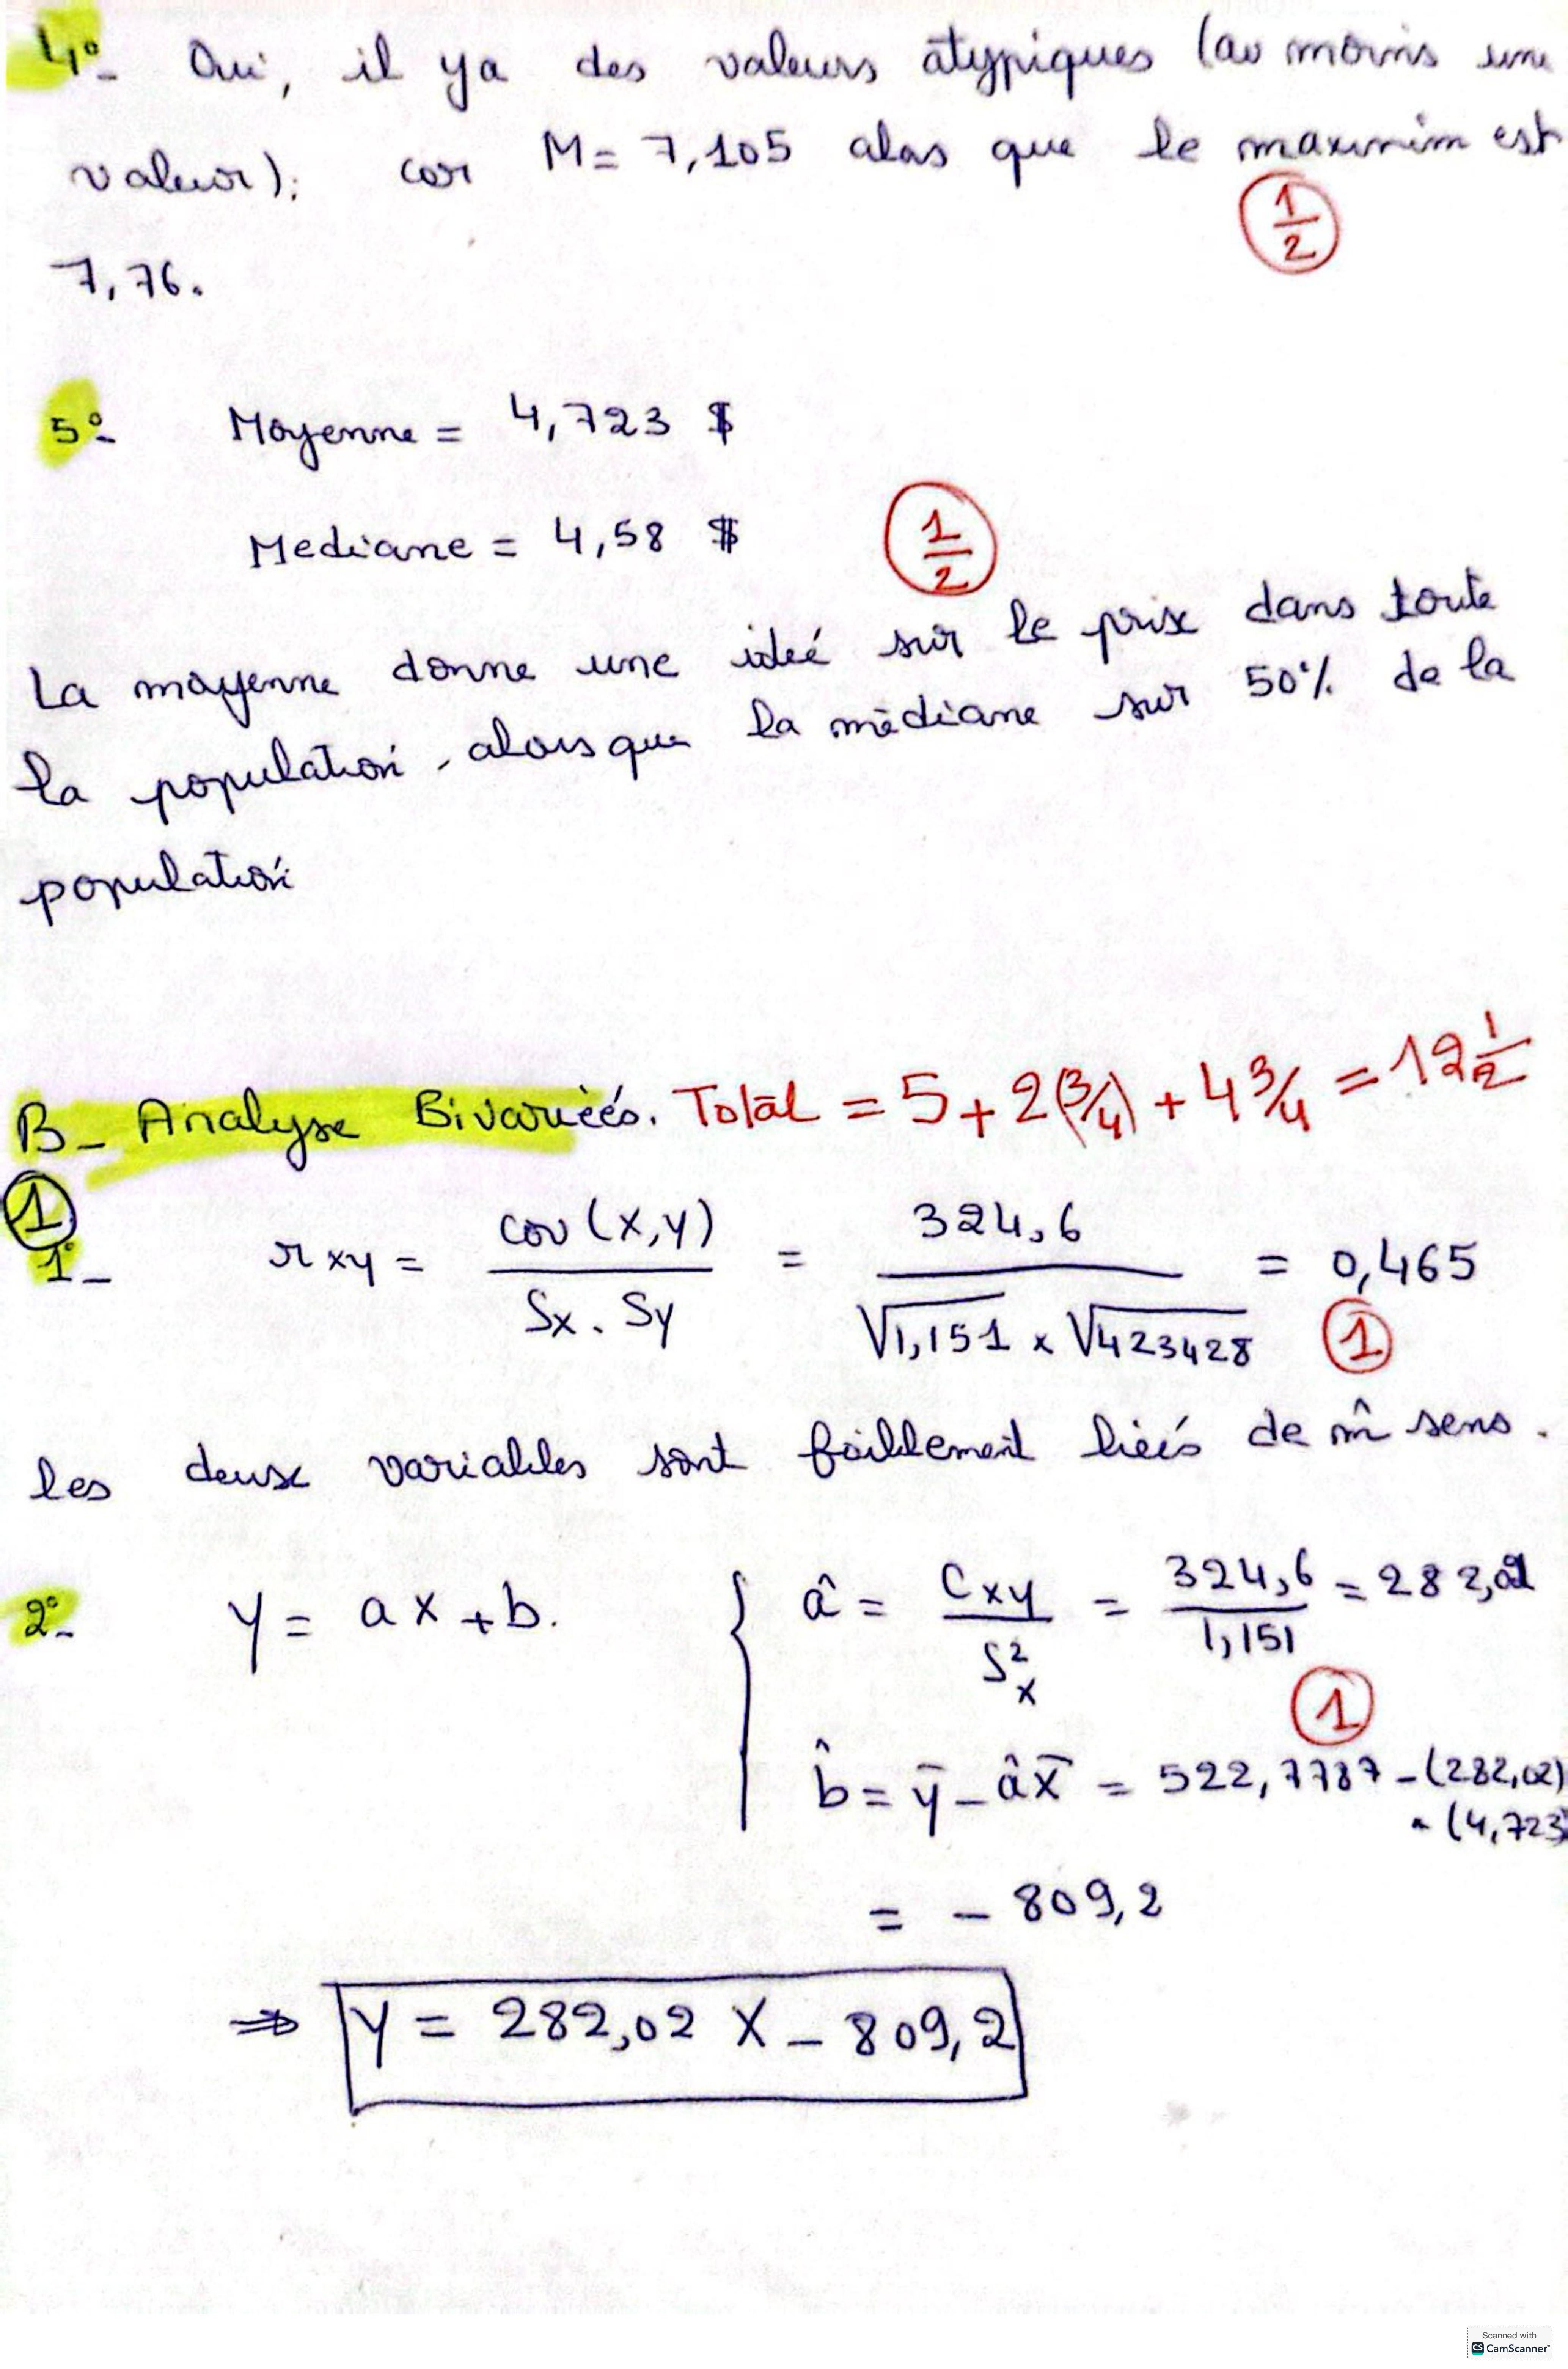 4°- Oui, il ya des valeurs atypiques (au moins une
valeur); car M = 7,105 alors que le maximim est
1/2
7,76.
5°- Moyenne = 4,723 $
Mediane = 4,58 $
1/2
La moyenne donne une idée sur le prix dans toute
la population, alors que la médiane sur 50% de la
population
B- Analyse Bivariées. Total = 5 + 2(3/4) + 4 3/4 = 12 1/2
1
1°- r xy = cov(x,y) / Sx . Sy = 324,6 / √1,151 x √423428 = 0,465
1
les deux variables sont faiblement liées de m̂ sens.
2°- Y = aX + b. { â = Cxy / S²x = 324,6 / 1,151 = 282,02
1
b̂ = ȳ - âx̄ = 522,7787 - (282,02)
. (4,723)
= - 809,2
⇒ Y = 282,02 X - 809,2
Scanned with
CS CamScanner